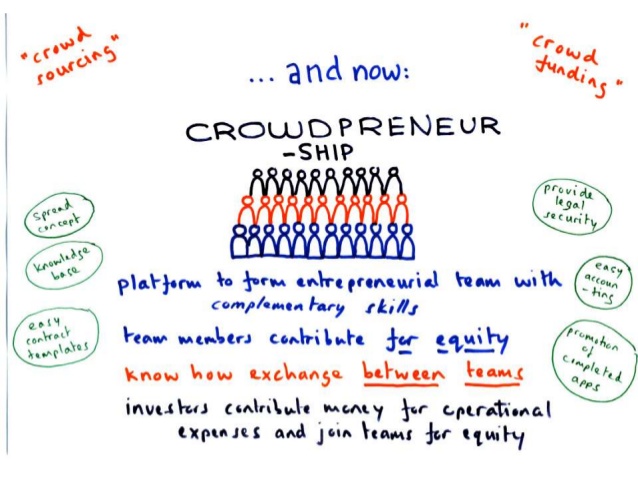 "crowd
sourcing"
"crowd
funding"
... and now:
CROWDPRENEUR
-SHIP
spread
concept
knowledge
base
easy
contract
templates
provide
legal
security
easy
accoun
-ting
promotion
of
completed
apps
platform to form entrepreneurial team with
complementary skills
team members contribute for equity
know how exchange between teams
investors contribute money for operational
expenses and join teams for equity